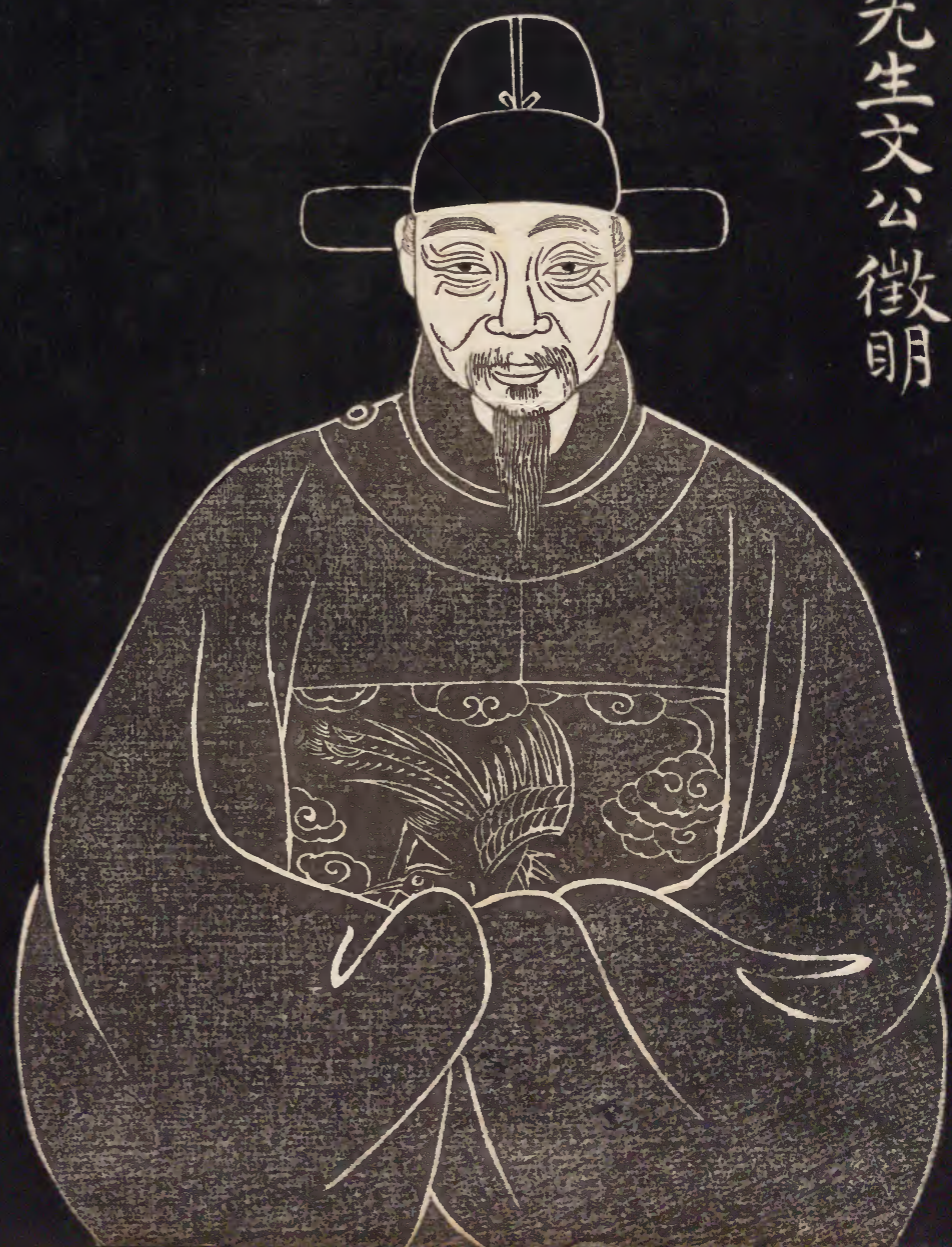 先生文公徵明